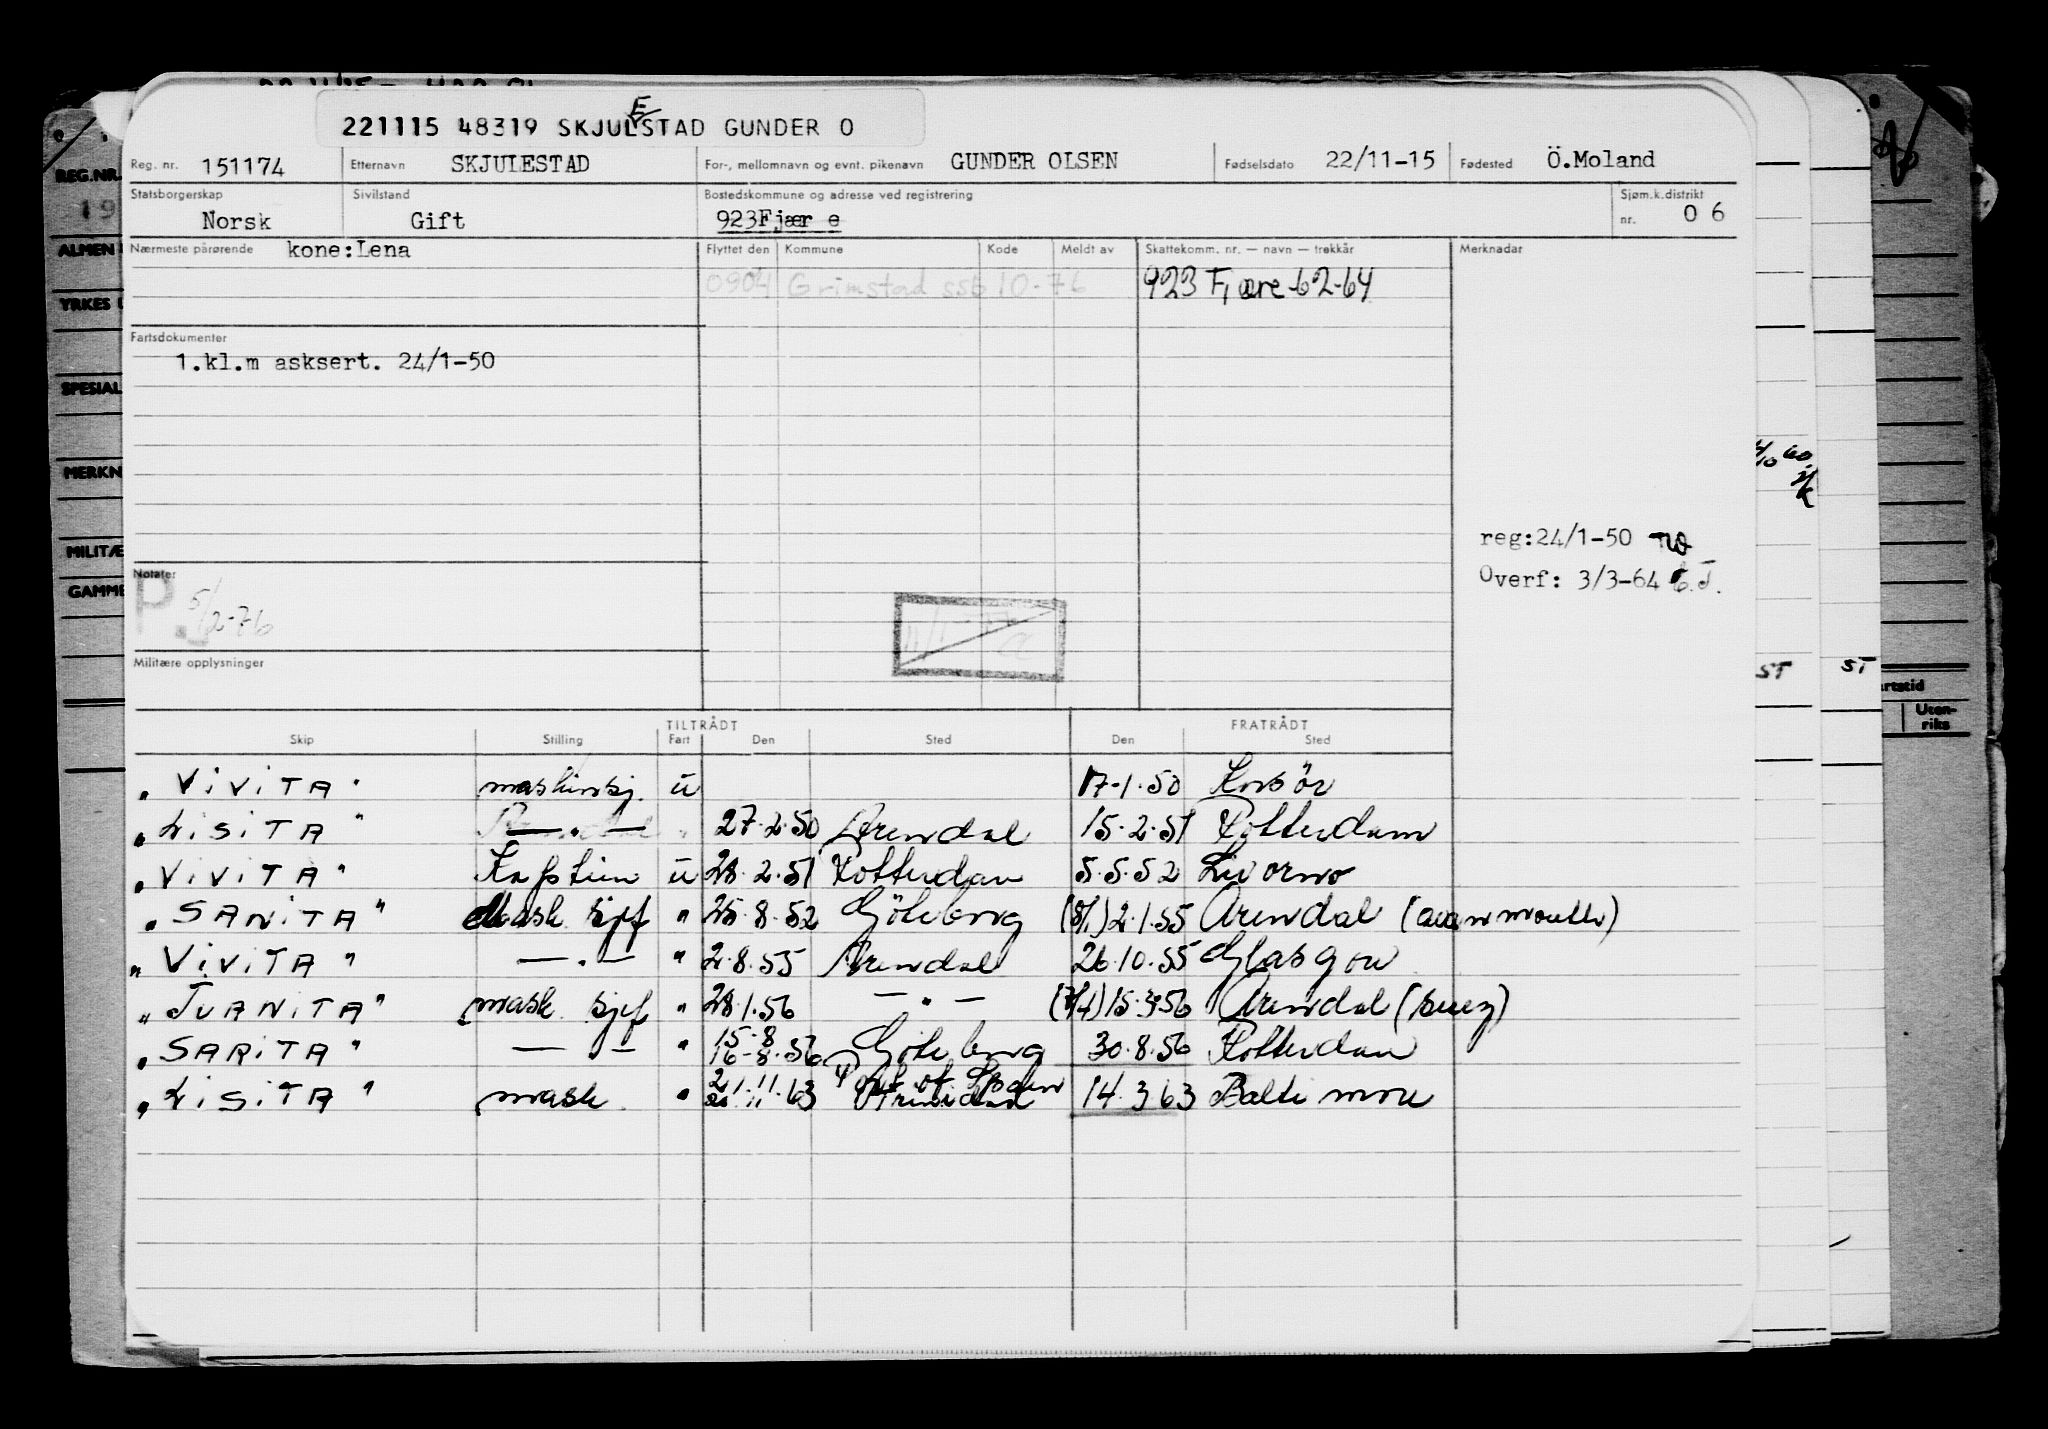 221115 48319 SKJULESTAD GUNDER O
Reg. nr. 151174 Etternavn SKJULESTAD For-, mellomnavn og evnt. pikenavn GUNDER OLSEN Fødselsdato 22/11-15 Fødested Ö.Moland
Statsborgerskap Sivilstand Bostedskommune og adresse ved registrering Sjøm.k.distrikt
Norsk Gift 923Fjær e nr. 06
Nærmeste pårørende kone:Lena Flyttet den Kommune Kode Meldt av Skattekomm. nr. — navn — trekkår Merknadar
0904 Grimstad ssb 10-76 923 Fjære 62-64
Fartsdokumenter
1.kl.m asksert. 24/1-50
reg:24/1-50
Overf: 3/3-64
Notater
P. 5/2-76
Militære opplysninger
TILTRÅDT FRATRÅDT
Skip Stilling Fart Den Sted Den Sted
"ViViTA" maskinsj. u 17-1.50 Korsör
"LiSiTA" —"— " 27.2.50 Arendal 15.2.51 Rotterdam
"ViViTA" Kaptein u 28.2.51 Rotterdam 5.5.52 Livorno
"SANiTA" Mask sjef " 25.8.52 Göteborg (8/1) 2.1.55 Arendal (avanmouth)
"ViViTA" —"— " 2.8.55 Arendal 26.10.55 Glasgow
"JUANiTA" mask sjef " 28.1.56 —"— (7/4) 15.3.56 Arendal (suez)
"SARiTA" —"— " 15-8 16-8.56 Göteborg 30.8.56 Rotterdam
"LiSiTA" mask. " 21.11.63 Port of Spain Trinidad 14.3.63 Baltimore
REG.NR.
19
ALMEN
YRKES
SPESIAL
MERKN
MILITÆ
GAMME
ST
ST
Uten-
riks